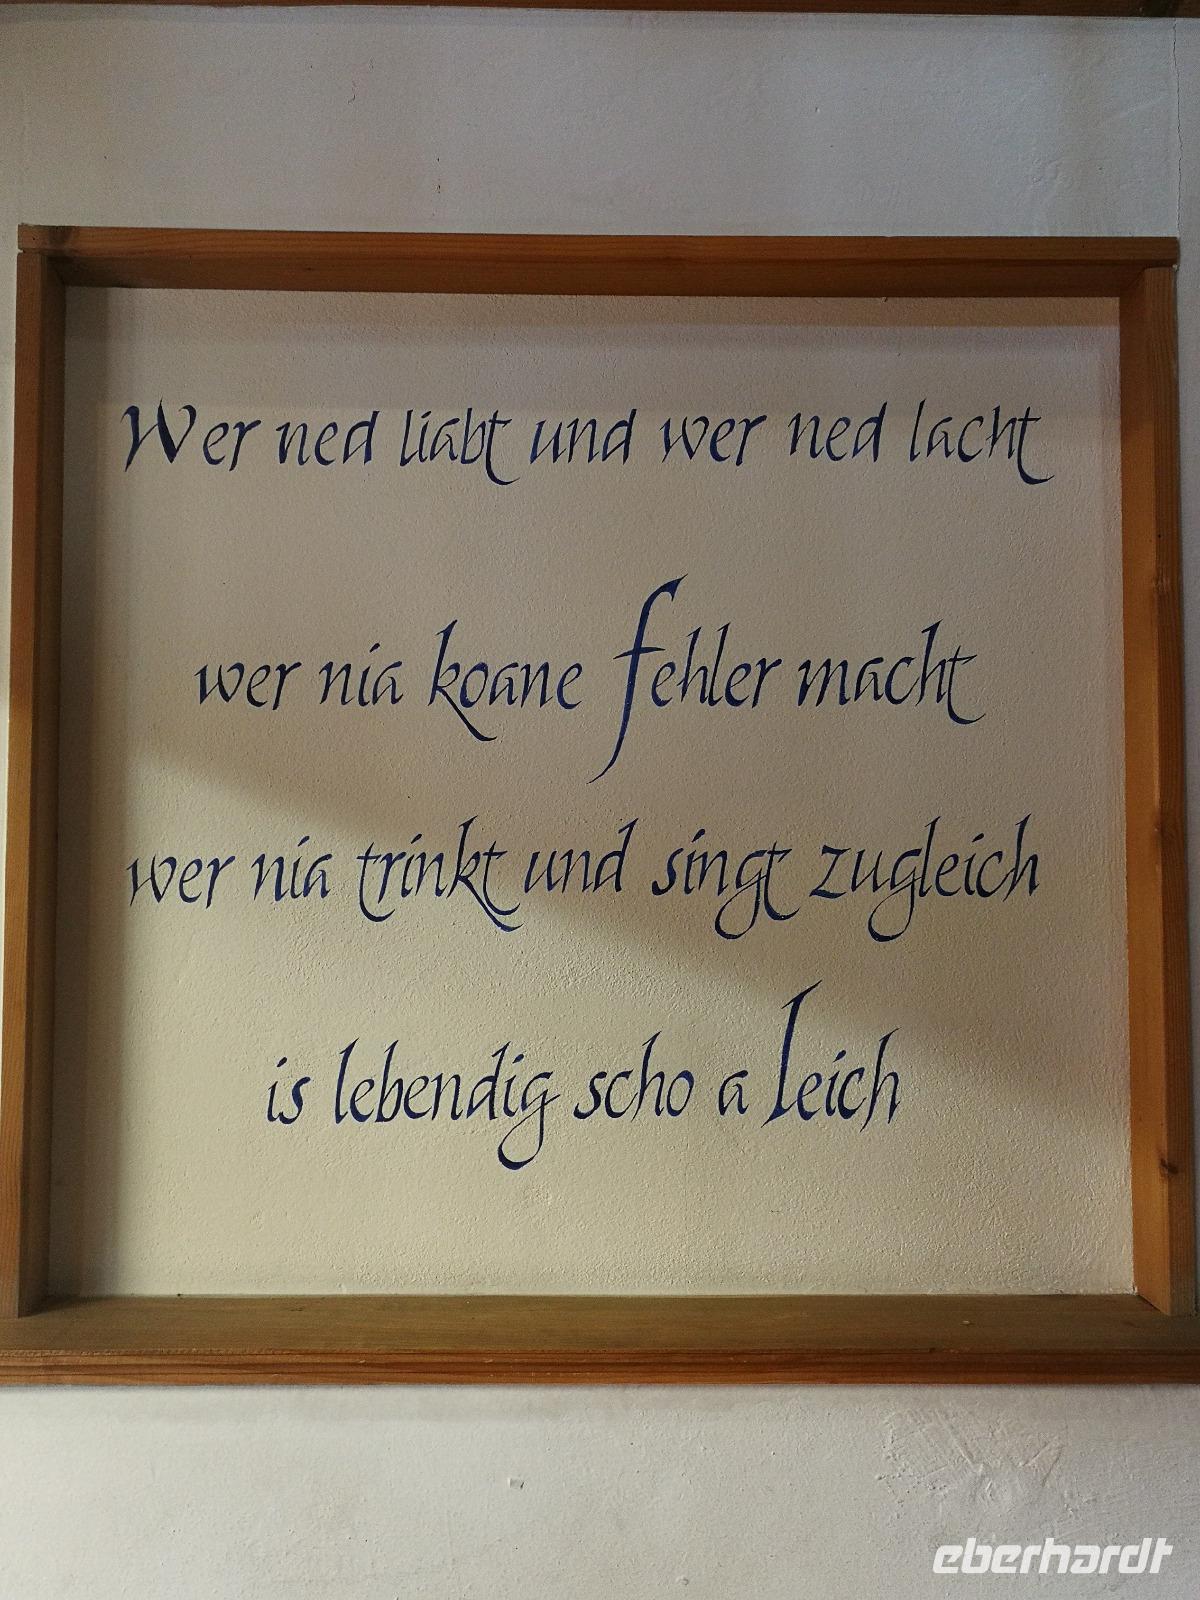 Wer ned liabt und wer ned lacht
wer nia koane Fehler macht
wer nia trinkt und singt zugleich
is lebendig scho a Leich
eberhardt